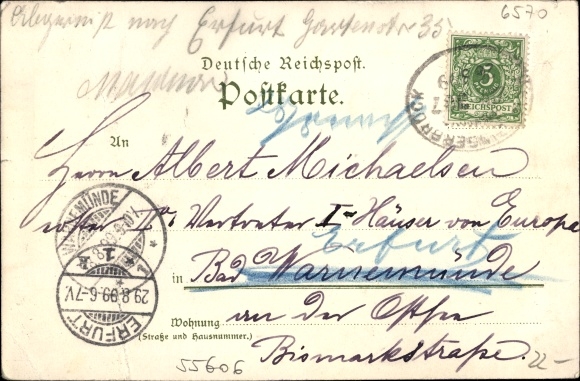 nach Erfurt Gartenstr 35
6570
Deutsche Reichspost.
Postkarte.
5
REICHSPOST
BINGERBRÜCK
An
Herrn Albert Michaelsen
Vertreter I Häuser von Europa
Erfurt
in Bad Warnemünde
an der Ostsee
Wohnung
(Straße und Hausnummer.)
Bismarckstraße.
WARNEMÜNDE
29.8.99.6-7V.
ERFURT
55606
22-